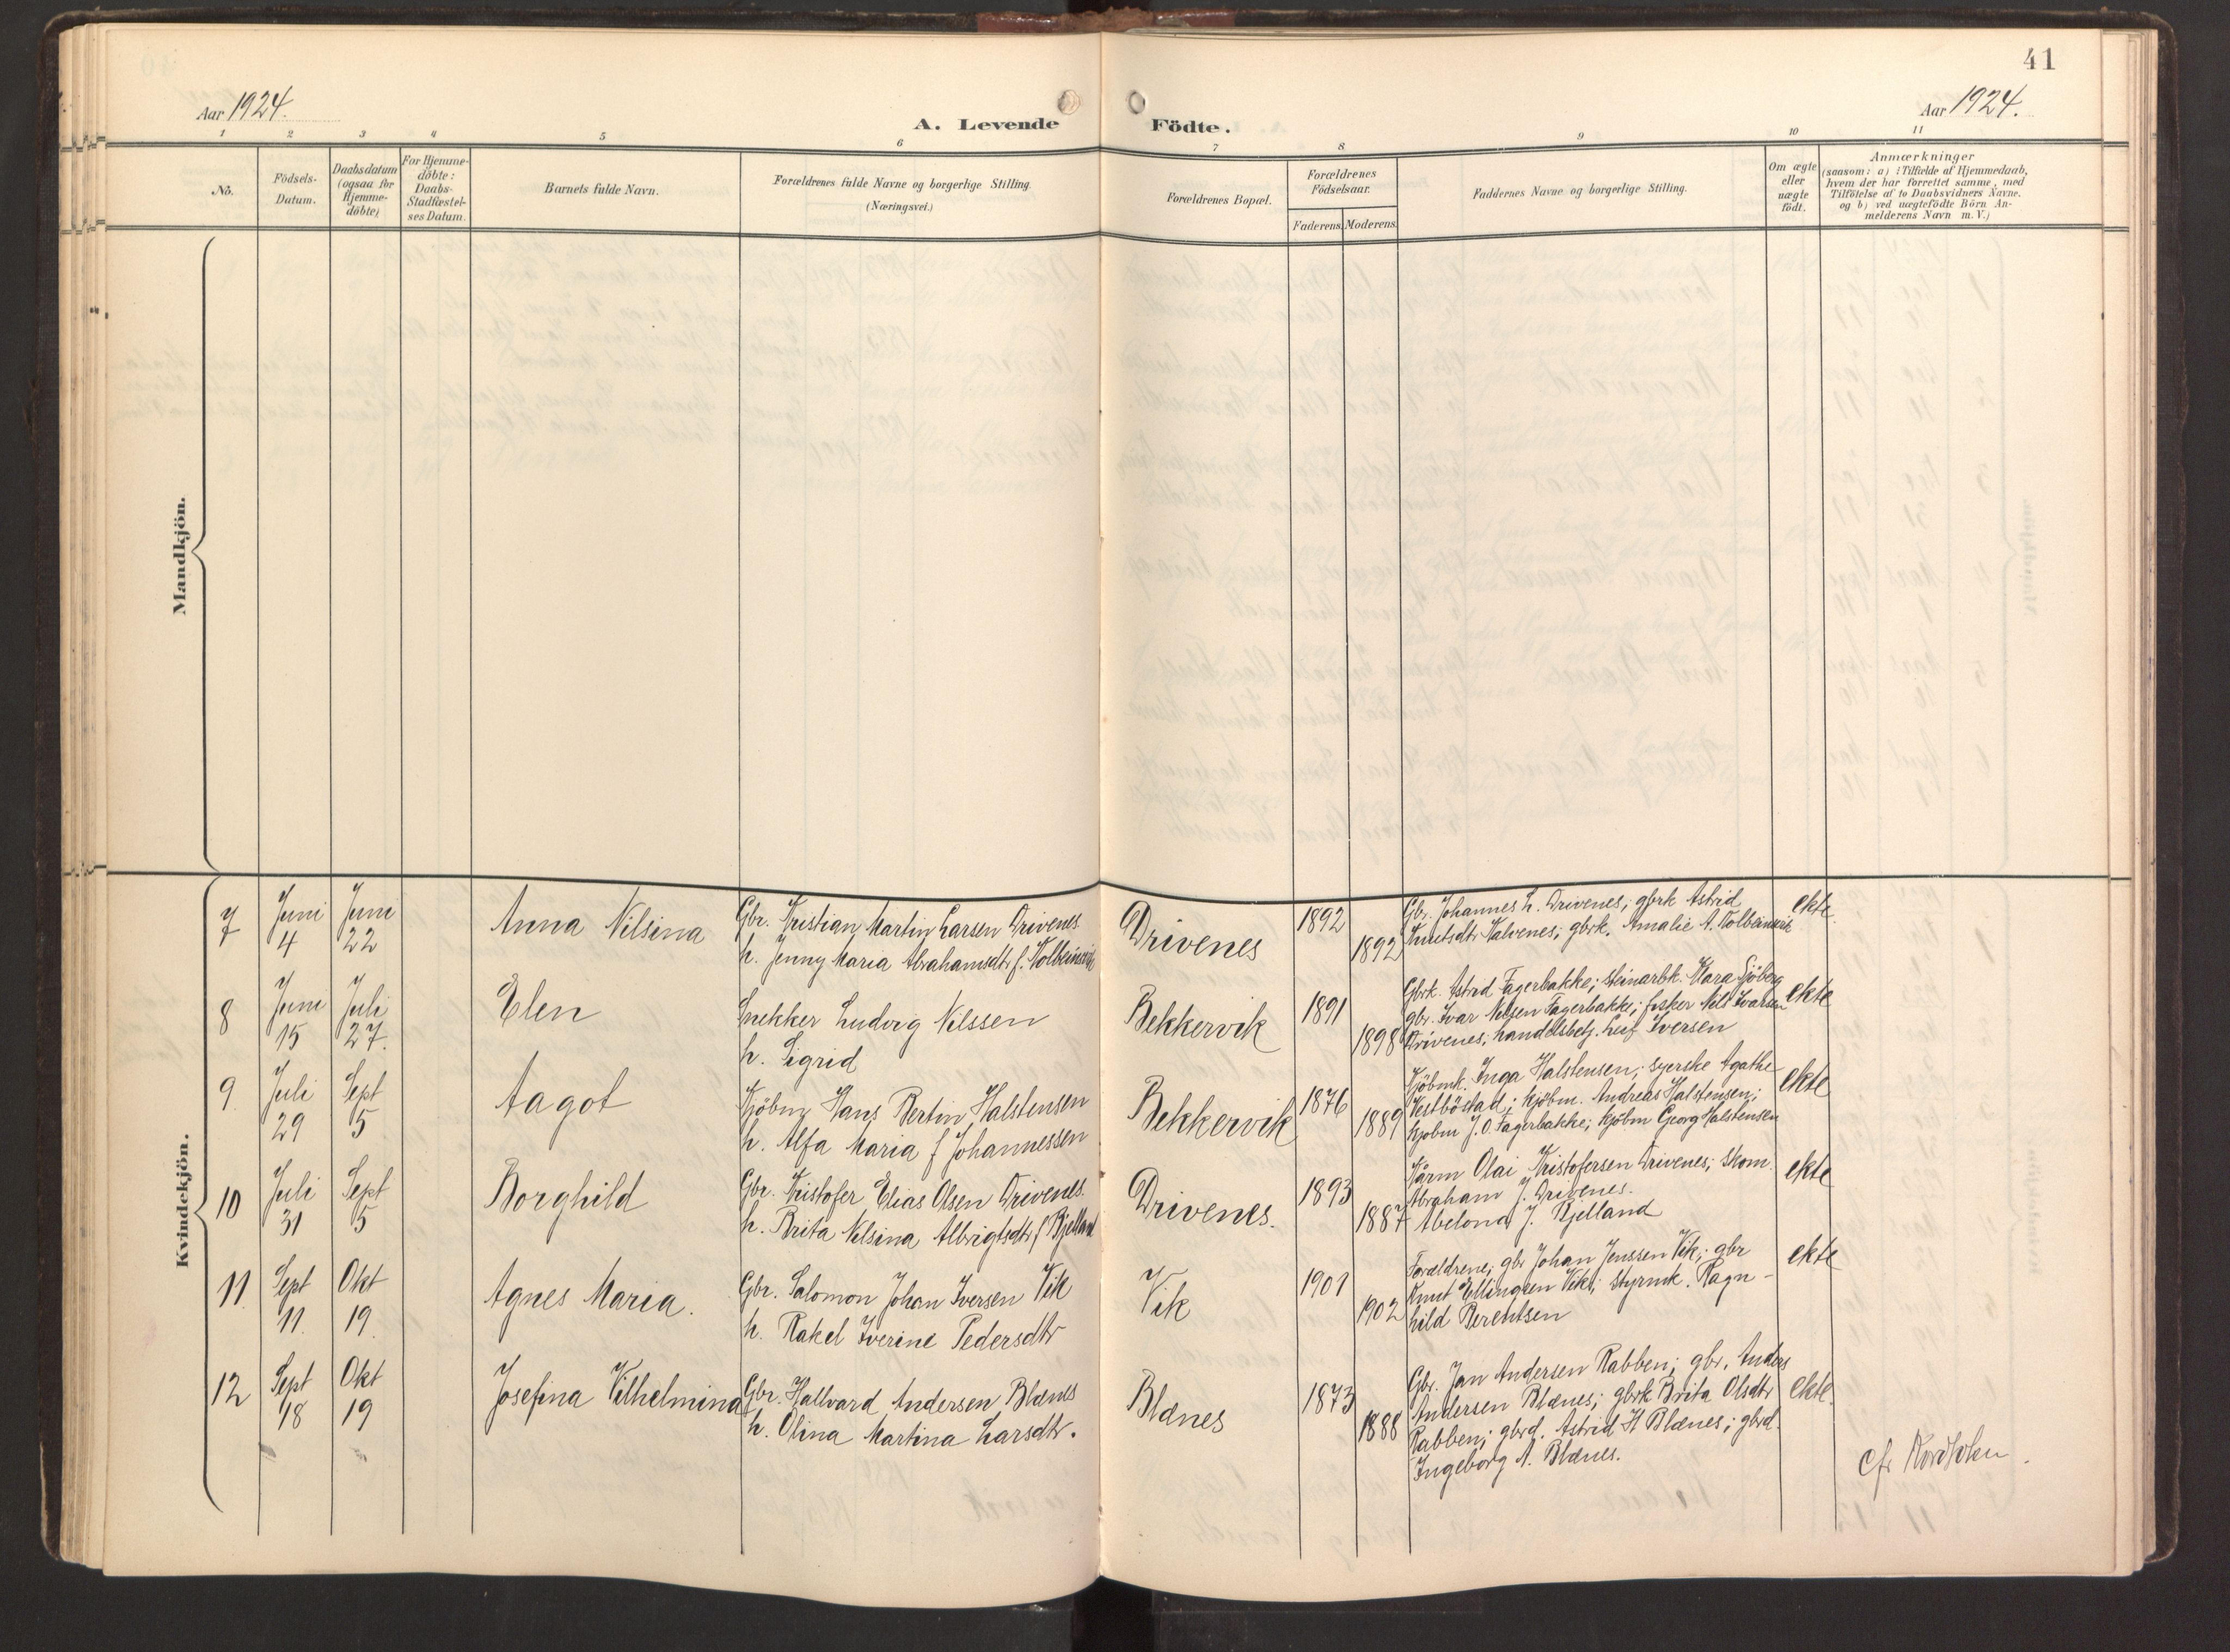 41
Aar 1924.
Aar 1924.
A. Levende Födte.
1 2 3 4 5 6 7 8 9 10 11
No.
Födsels-
Datum.
Daabsdatum
(ogsaa for
Hjemme-
döbte)
For Hjemme-
döbte:
Daabs-
Stadfæstel-
ses Datum.
Barnets fulde Navn.
Forældrenes fulde Navne og borgerlige Stilling.
(Næringsvei.)
Forældrenes Bopæl.
Forældrenes
Födselsaar.
Faderens. Moderens.
Faddernes Navne og borgerlige Stilling.
Om ægte
eller
uægte
födt.
Anmærkninger
(saasom: a) i Tilfælde af Hjemmedaab,
hvem der har forrettet samme, med
Tilföielse af to Daabsvidners Navne.
og b) ved uægtefödte Börn An-
melderens Navn m. V.)
Mandkjön.
Kvindekjön.
7
Juni
4
Juni
22
Anna Nilsina
Gbr. Kristian Martin Larsen Drivenes
h. Jenny Maria Abrahamsdtr f. Kolbeinsvik
Drivenes
1892
1892
Gbr. Johannes L. Drivenes; gbrk Astrid
Knutsdtr Kalvenes; gbrk. Amalie A. Kolbeinsvik
ekte.
8
Juni
15
Juli
27.
Elen
Snekker Ludvig Nilssen
h. Sigrid
Bekkervik
1891
1898
Gbrk. Astrid Fagerbakke; steinarbk. Klara Sjöberg
gbr. Ivar Nilsen Fagerbakke; fisker Nils Ivarsen
Drivenes; handelsbetj. Leif Iversen
ekte
9
Juli
29
Sept
5
Aagot
Kjöbm. Hans Bertin Halstensen
h. Alfa Maria f Johannessen
Bekkervik
1876
1889
Kjöbmk. Inga Halstensen; syerske Agathe
Vestböstad; kjöbm. Andreas Halstensen;
kjöbm J. O. Fagerbakke; kjöbm Georg Halstensen
ekte
10
Juli
31
Sept
5
Borghild
Gbr. Kristofer Elias Olsen Drivenes.
h. Brita Nilsina Albrigtsdtr f Bjelland
Drivenes.
1893
1887
Olai Kristofersen Drivenes; skom.
Abraham J. Drivenes.
Abelona J. Bjelland
ekte
11
Sept
11.
Okt
19.
Agnes Maria.
Gbr. Salomon Johan Iversen Vik
h. Rakel Iverine Pedersdtr
Vik
1901
1902
Forældrene; gbr Johan Jenssen Vik; gbr
Knut Ellingsen Vik; styrmk. Ragn-
hild Berentsen
ekte
12
Sept
18
Okt
19
Josefina Vilhelmina
Gbr. Hallvard Andersen Blænes
h. Olina Martina Larsdtr.
Blænes
1873
1888
Gbr. Jan Andersen Rabben; gbr. Anders
Andersen Blænes; gbrk Brita Olsdtr
Rabben; gbrd. Astrid H Blænes; gbrd.
Ingeborg A. Blænes.
ekte.
cfr